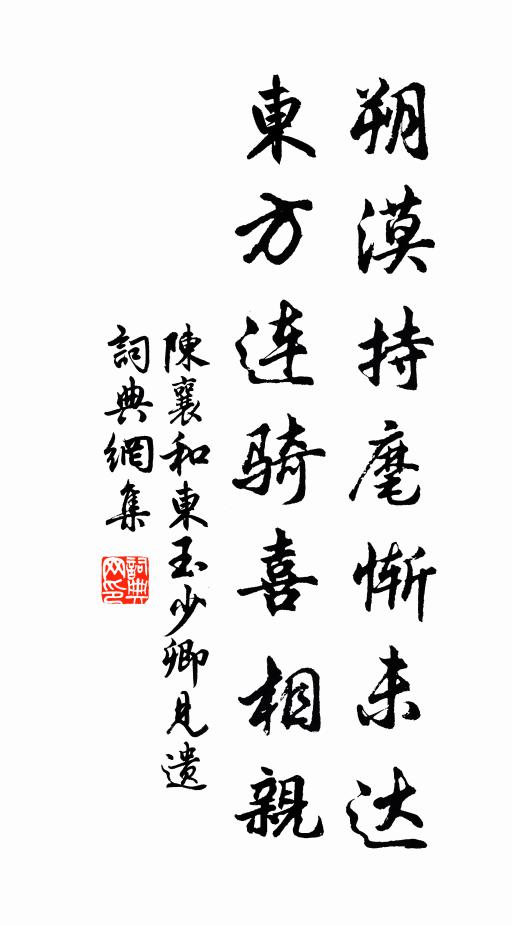 朔漠持麾惭未达
東方连骑喜相親
陳襄和東玉少卿見遗
詞典網集
詞典网印